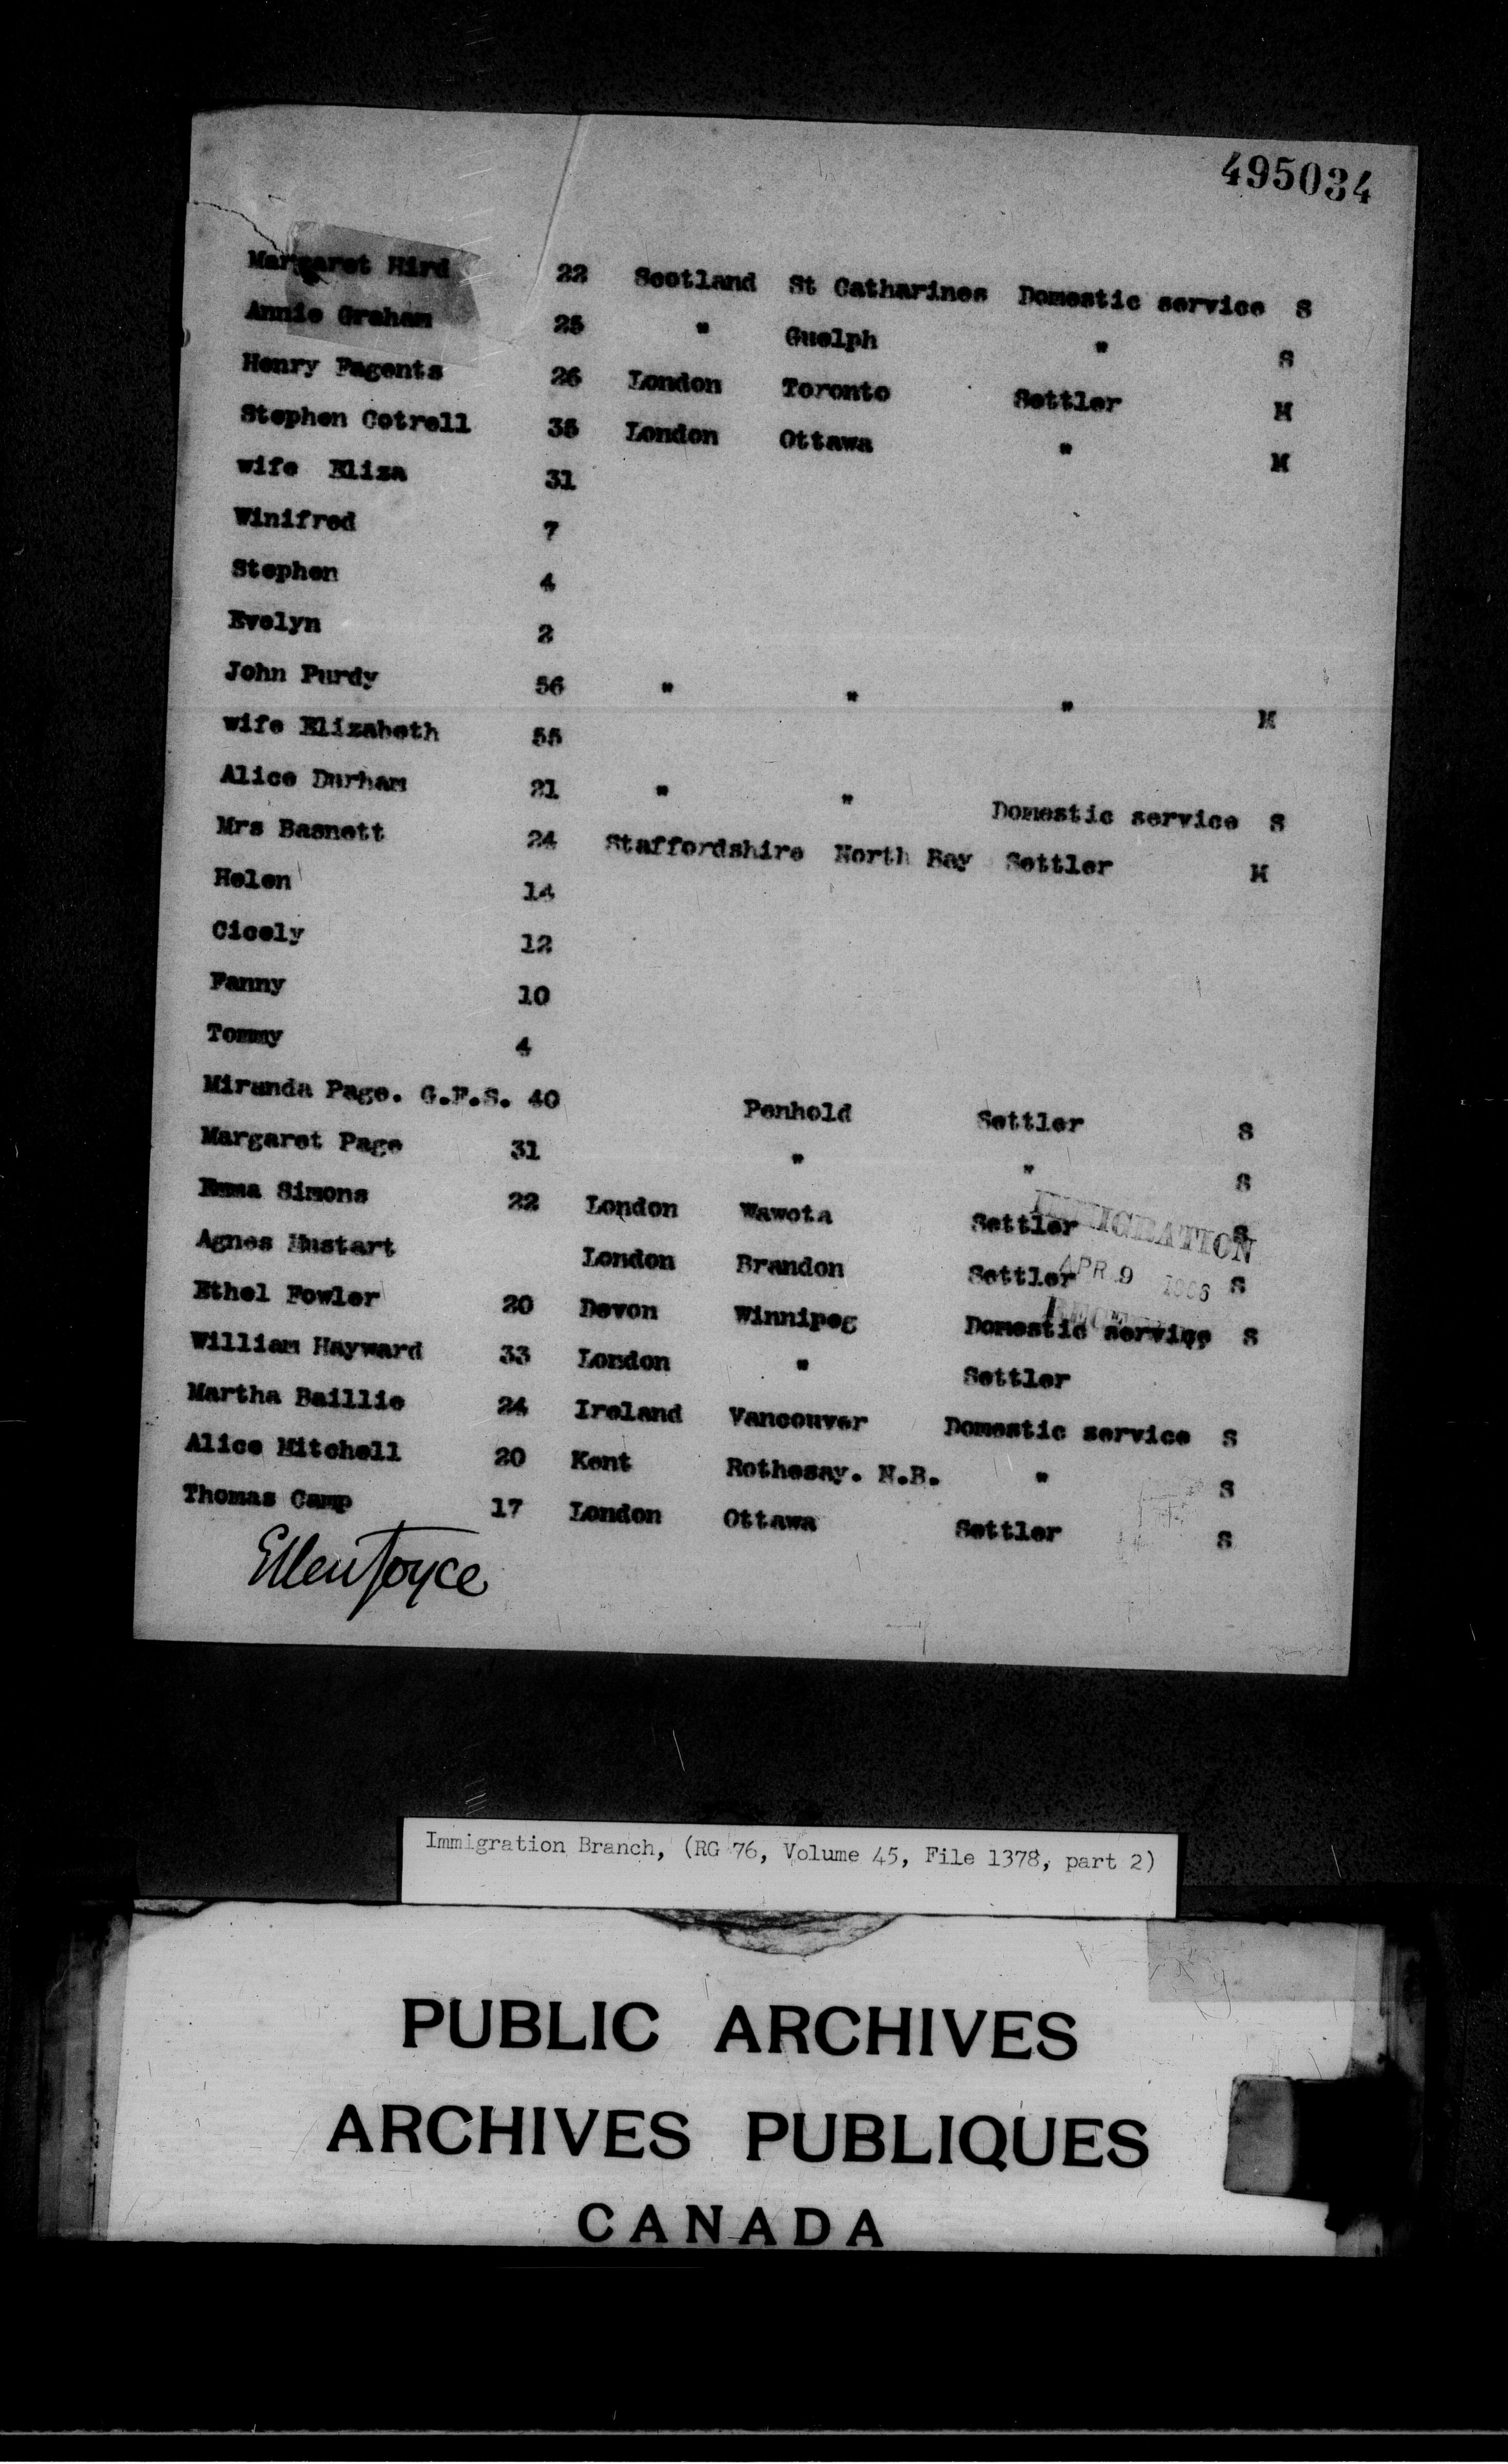 495034
Margaret Hird 22 Scotland St Catharines Domestic service S
Annie Graham 25 " Guelph " S
Henry Pagents 26 London Toronto Settler M
Stephen Cotrell 35 London Ottawa " M
wife Eliza 31
Winifred 7
Stephen 4
Evelyn 2
John Purdy 56 " " " M
wife Elizabeth 55
Alice Durham 21 " " Domestic service S
Mrs Basnett 24 Staffordshire North Bay Settler M
Helen 14
Cicely 12
Fanny 10
Tommy 4
Miranda Page. G.F.S. 40 Penhold Settler S
Margaret Page 31 " " S
Emma Simons 22 London Wawota Settler S
Agnes Mustart London Brandon Settler S
Ethel Fowler 20 Devon Winnipeg Domestic service S
William Hayward 33 London " Settler
Martha Baillie 24 Ireland Vancouver Domestic service S
Alice Mitchell 20 Kent Rothesay. N.B. " S
Thomas Camp 17 London Ottawa Settler S
IMMIGRATION
APR 9 1906
Ellen Joyce
Immigration Branch, (RG 76, Volume 45, File 1378, part 2)
PUBLIC ARCHIVES
ARCHIVES PUBLIQUES
CANADA